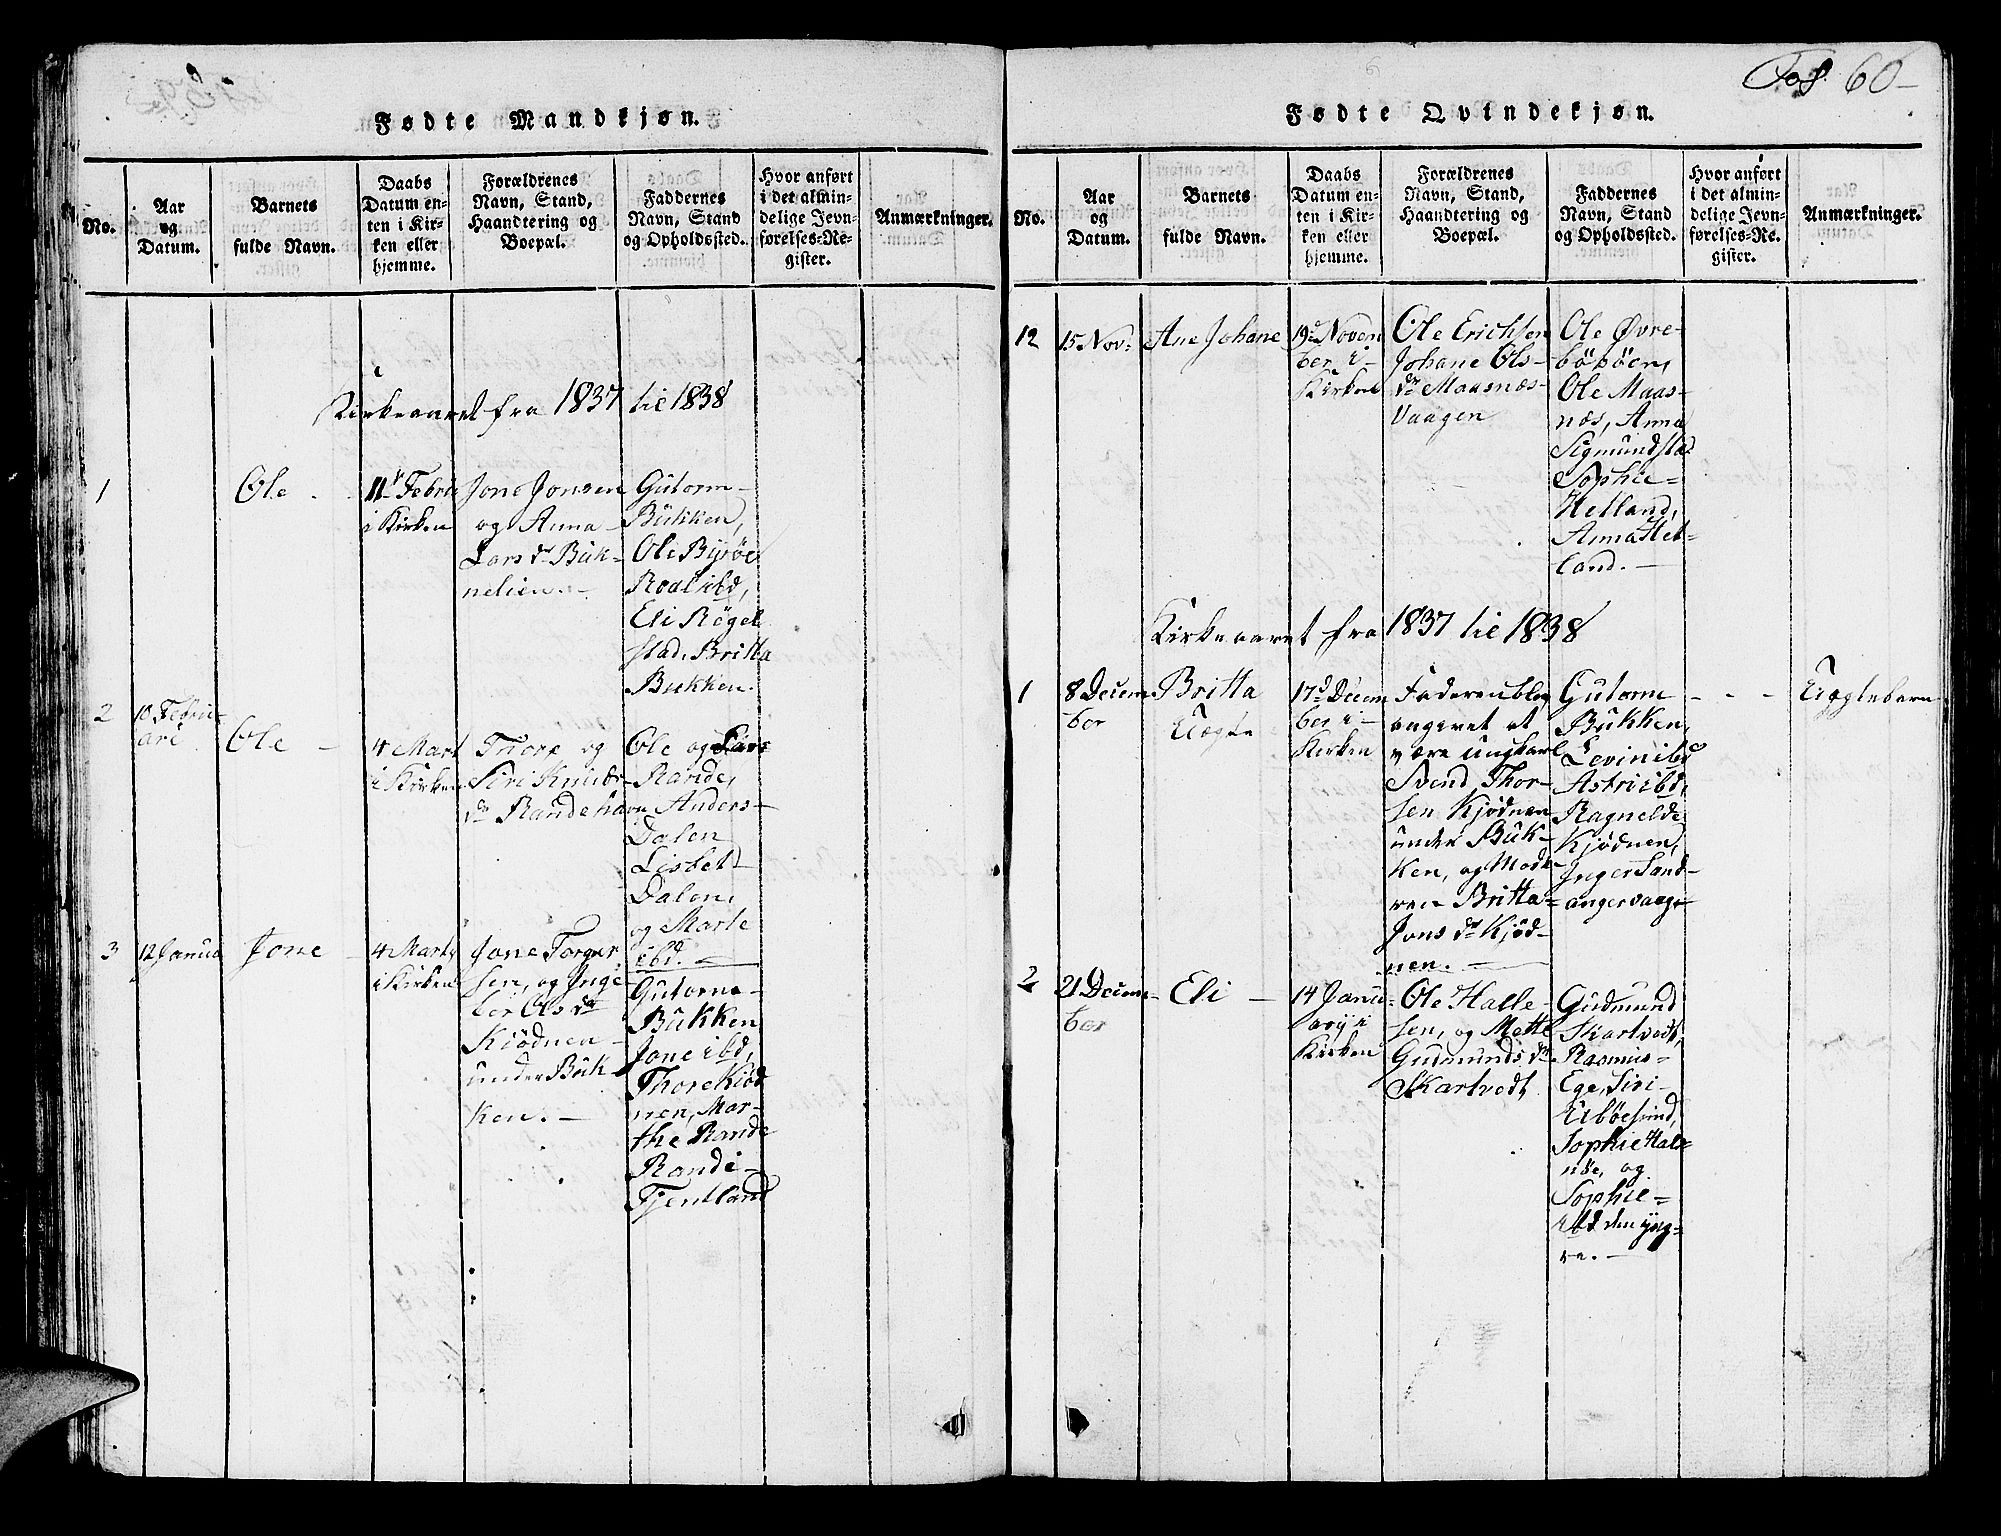 Fødte Mandkjøn.
No.
Aar
og
Datum.
Barnets
fulde Navn.
Daabs
Datum en-
ten i Kir-
ken eller
hjemme.
Forældrenes
Navn, Stand,
Haandtering og
Boepæl.
Faddernes
Navn, Stand
og Opholdssted.
Hvor anført
i det almin-
delige Jevn-
førelses-Re-
gister.
Anmærkninger.
Kirkeaaret fra 1837 til 1838
1
Ole
11te Febru
i Kirken
Jone Jonsen
og Anna
Lars dr Buk-
nelien.
Gutorm
Bukken,
Ole Byøe
Roal ibd,
Eli Røgel
stad, Britta
Bukken.
2
10 Febru-
ari
Ole
4 Mart
i Kirken
Thore og
Siri Knuds-
dr Randehavn
Ole og Lars
Rande,
Anders
Dalen
Lisbet
Dalen,
og Marte
ibd.
3
12 Janua
Jone
4 Marty
i Kirken
Jone Torger
sen, og Inge
ber Ols dr
Kiødnen
under Buk-
ken.
Gutorm
Bukken
Jone ibd,
Thore Kiød
nen, Mar-
the Rande
Randi
Tjentland
Fol 60
Fødte Qvindekjøn.
No.
Aar
og
Datum.
Barnets
fulde Navn.
Daabs
Datum en-
ten i Kir-
ken eller
hjemme.
Forældrenes
Navn, Stand,
Haandtering og
Boepæl.
Faddernes
Navn, Stand
og Opholdsted.
Hvor anført
i det almin-
delige Jevn-
førelses-Re-
gister.
Anmærkninger.
12
15 Nov.
Ane Johane
19de Novem
ber i
Kirken
Ole Erichsen
Johane Ols-
dr Maasnæs-
Vaagen
Ole Øvre-
bøbøen,
Ole Maas-
næs, Anna
Sigmundstad
Sophie
Helland,
Anna Hel-
land.
Kirkeaaret fra 1837 til 1838
1
8 Decem
ber
Britta
Uægte
17d Decem
ber i
Kirken
Faderen blev
angivet at
være Ungkarl
Svend Thor-
sen Kjødnen
under Buk-
ken, og Mode
ren Britta
Jons dr Kjød-
nen.
Gutorm
Bukken,
Levin ibd
Astri ibd,
Ragnelde
Kjødnen,
Inger Sand-
angervaage
Uægtebarn
2
21 Decem-
ber
Eli
14 Janu-
ary i
Kirken
Ole Halle-
sen, og Mette
Gudmunds dr
Skartvedt
Gudmund
Skartvedt,
Rasmus
Ege, Siri
Sophie Hals-
nøe, og
Sophie
ibd den yng-
re.